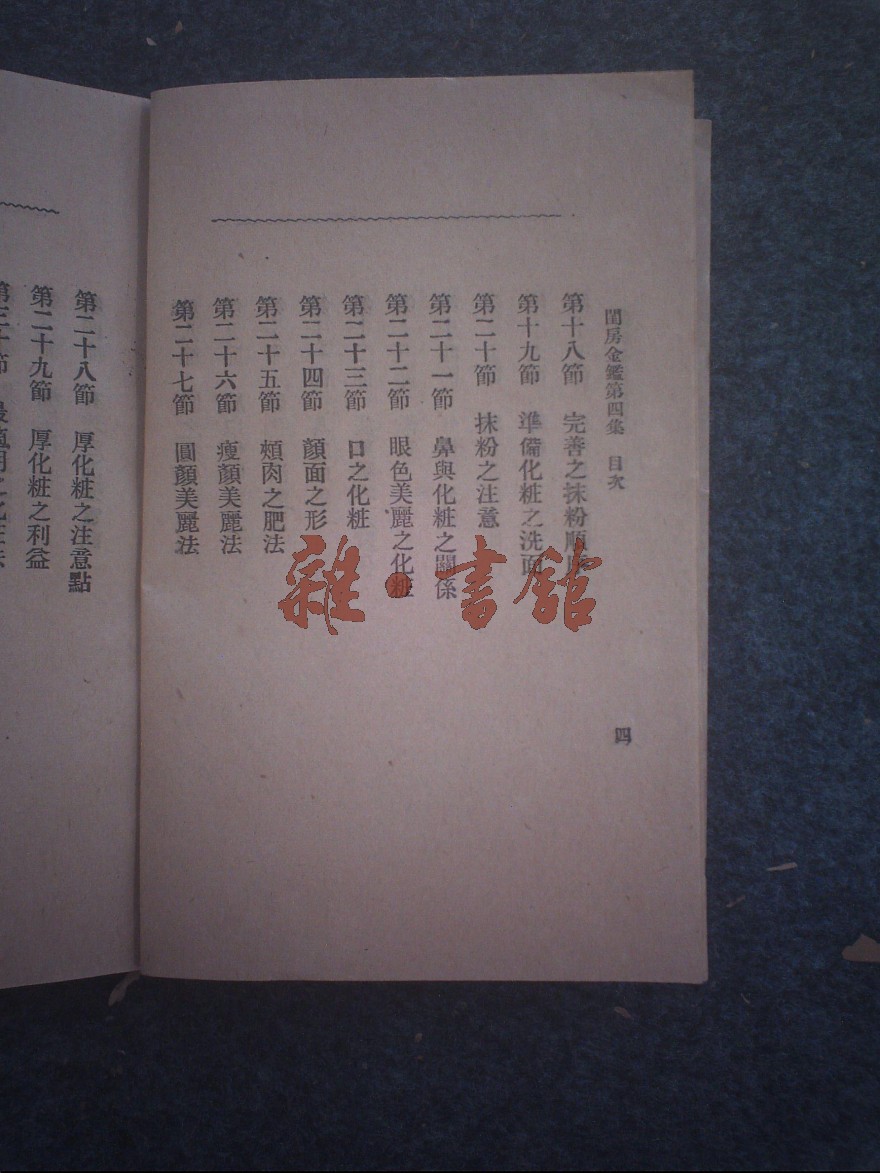 閨房金鑑第四集　目次
第十八節　完善之抹粉順
第十九節　準備化粧之洗面
第二十節　抹粉之注意
第二十一節　鼻與化粧之關係
第二十二節　眼色美麗之化粧
第二十三節　口之化粧
第二十四節　顏面之形
第二十五節　頰肉之肥法
第二十六節　瘦顏美麗法
第二十七節　圓顏美麗法
四
第二十八節　厚化粧之注意點
第二十九節　厚化粧之利益
雜·書館